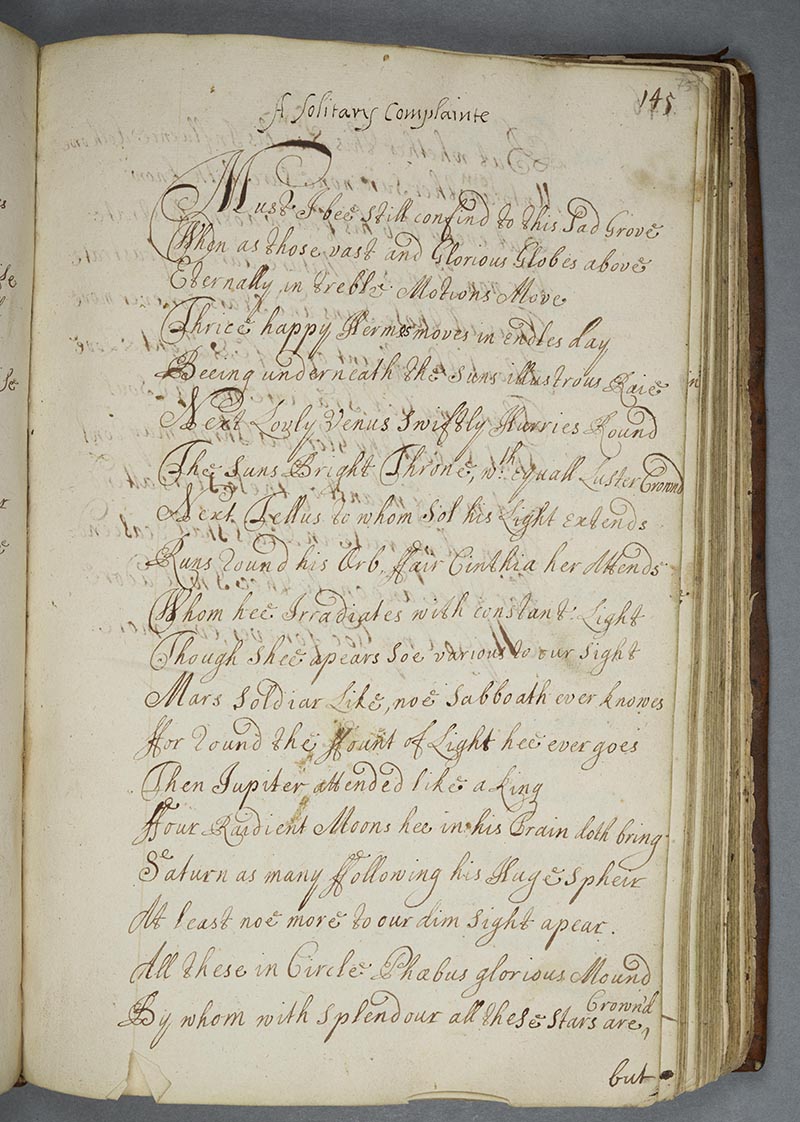 145
A Solitary Complainte
Must I bee still confind to this sad Grove
When as those vast and Glorious Globes above
Eternally in treble Motions Move
Thrice happy Hermes moves in endles day
Beeing underneath the suns illustrous Raie
Next Lovly Venus swiftly Hurries Round
The suns Bright Throne, wth equall Luster Crownd
Next Tellus to whom Sol his Light extends
Runs round his Orb, ffair Cinthia her Attends
Whom hee Irradiates with constant Light
Though shee apears soe various to our sight
Mars soldiar Like, noe sabboath ever knowes
ffor round the ffount of Light hee ever goes
Then Jupiter attended like a king
ffour Raidient Moons hee in his Train doth bring
Seaturn as many ffollowing his Huge spheir
At least noe more to our dim sight apear.
All these in Circle Phœbus glorious Mound
By whom with splendour all these stars are Crown'd
but